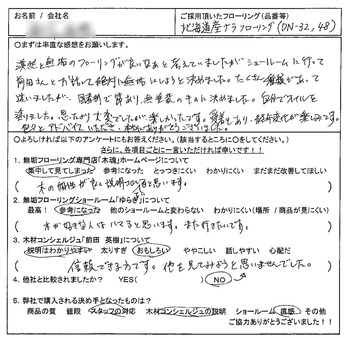 お名前 / 会社名
ご採用頂いたフローリング(品番等)
北海道産ナラフローリング(DN-32,48)
○まずは率直な感想をお願いします。
漠然と無垢のフローリングが良いなぁと考えていましたがショールームに行って
前田さんとお話して絶対に無垢にしようと決めました。たくさん種類があって
迷いましたが、国産材で節あり、無塗装のものに決めました。自分でオイルを
塗りました。思ったより大変でしたが楽しかったです。愛着もあり、経年変化が楽しみです。
色々とアドバイスいただき、本当にありがとうございました。
○よろしければ以下のアンケートにお答えください。(該当するところに○をしてください。)
さらに、各項目ごとに一言いただければ幸いです!!
1. 無垢フローリング専門店「木魂」ホームページについて
集中して見てしまった 参考になった とっつきにくい わかりにくい まだまだ改善してほしい
( 木の個性が良く説明されてると思います。 )
2. 無垢フローリングショールーム「ゆらぎ」について
最高! 参考になった 他のショールームと変わらない わかりにくい(場所 / 商品が見にくい)
( 木が好きな人はハマると思います。また行きたいです。 )
3. 木材コンシェルジュ「前田 英樹」について
説明はわかりやすい 太りすぎ おもしろい ややこしい 話しやすい 心配だ
( 信頼できる方です。他を見てみようと思いませんでした。 )
4. 他社と比較されましたか? YES( ) NO
5. 弊社で購入される決め手となったものは?
商品の質 値段 スタッフの対応 木材コンシェルジュの説明 ショールーム 直感 その他
ご協力ありがとうございました!!